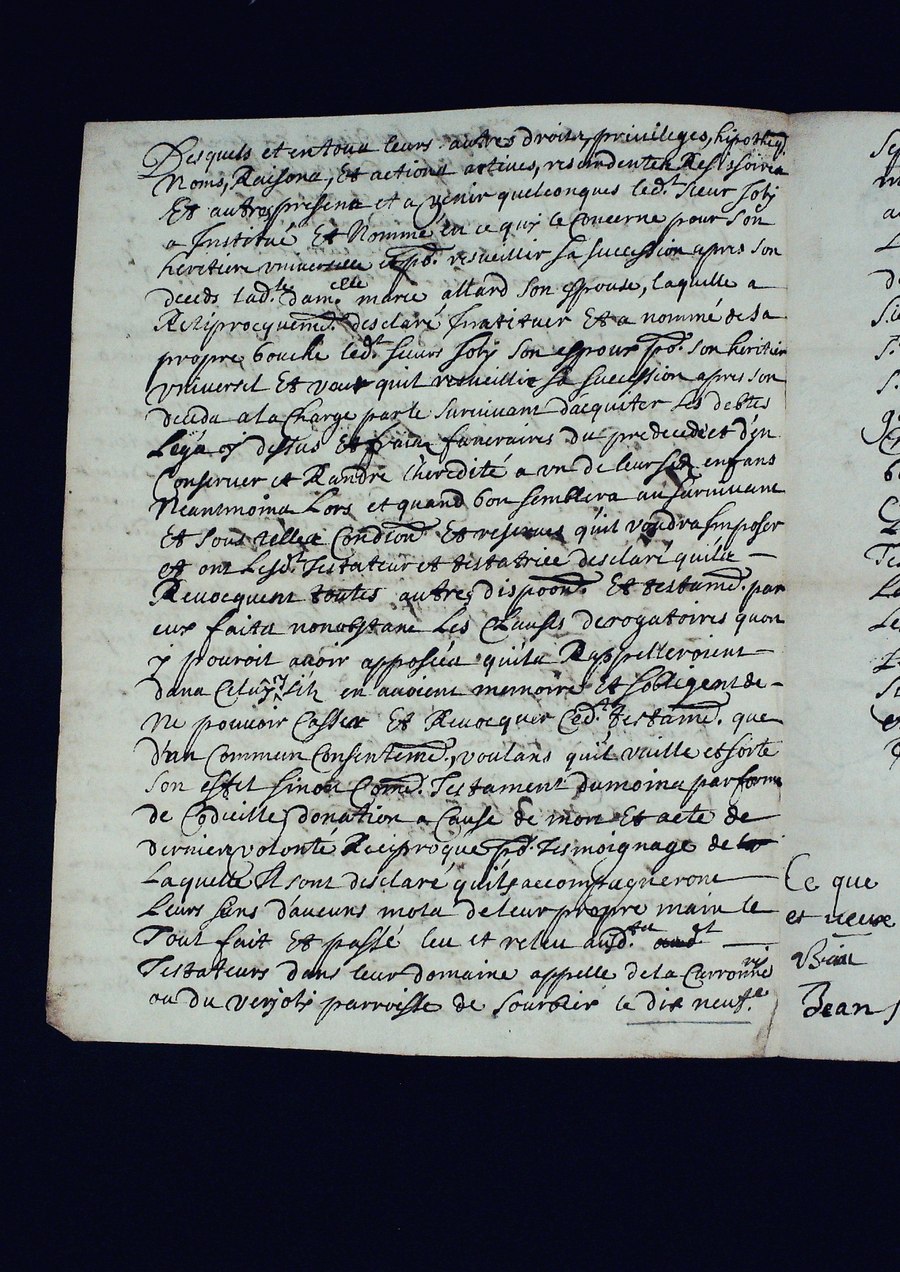 Desquels et en tous leurs autres droits, privileges, hipotheq.
Noms, Raisons, Et actions actives, rescindentes Ressoires
Et autres presens et a venir quelconques led.t Sieur Joly
a Institué Et Nommé en ce quy le Concerne pour Son
heritiere universelle et po.r recueillir sa succession apres son
deceds lad.te dam.elle marie allard Son espouse, laquelle a
Reciprocquem.t desclaré Instituer Et a nommé de sa
propre bouche led.t sieurs Joly son espoux po.r son heritier
universel Et veut quil recueillie sa succession apres son
deceds a la Charge par le Survivant dacquiter les debtes
Legs cy dessus Et frais funeraires du predecedé et den
Conserver et Randre lheredité a un de leursd.s enfans
Neantmoins Lors et quand bon semblera au survivant
Et sous telles Condion.s Et reserves quil voudra Imposer
et ont Lesd.ts Testateur et testatrice desclaré quils
Revocquent toutes autres dispoon.s Et testame.s par
eux faits nonobstant Les Clauses derogatoires quon
y pouroit avoir apposées quils Rappelleroient
dans Celuy cy silz en avoient memoire Et sobligent de
Ne pouvoir Casser Et Revocquer Ced.t testame.t que
dun Commun Consenteme.t, voulans quil vaille et sorte
Son effet sinon Come. Testament du moins par forme
de Codicille, donation a Cause de mort Et acte de
derniere volonté Reciproque po.r tesmoignage de
Laquelle Ils ont desclaré quils accompagneront
Leurs sens daucuns mots de leur propre main le
Tout fait Et passé leu et releu ausd.ts
Testateurs dans leur domaine appelle de la Carronne
ou du verjoly parroisse de Sourbier le dix neuf.e
Ce que
et
Jean